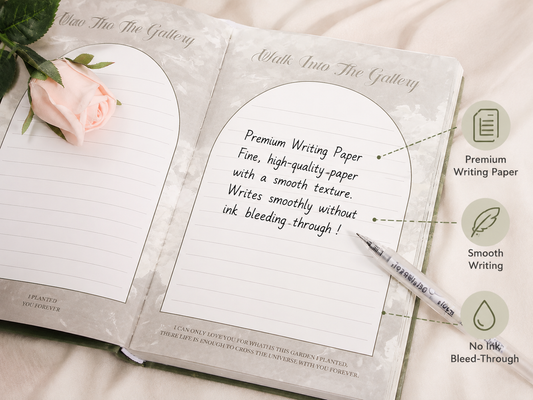 The Gallery
I PLANTED
YOU FOREVER
Walk Into The Gallery
Premium Writing Paper
Fine, high-quality-paper
with a smooth texture.
Writes smoothly without
ink bleeding-through !
I CAN ONLY LOVE YOU FOR WHAT IS THIS GARDEN I PLANTED.
THERE LIFE IS ENOUGH TO CROSS THE UNIVERSE WITH YOU FOREVER.
Premium
Writing Paper
Smooth
Writing
No Ink
Bleed-Through